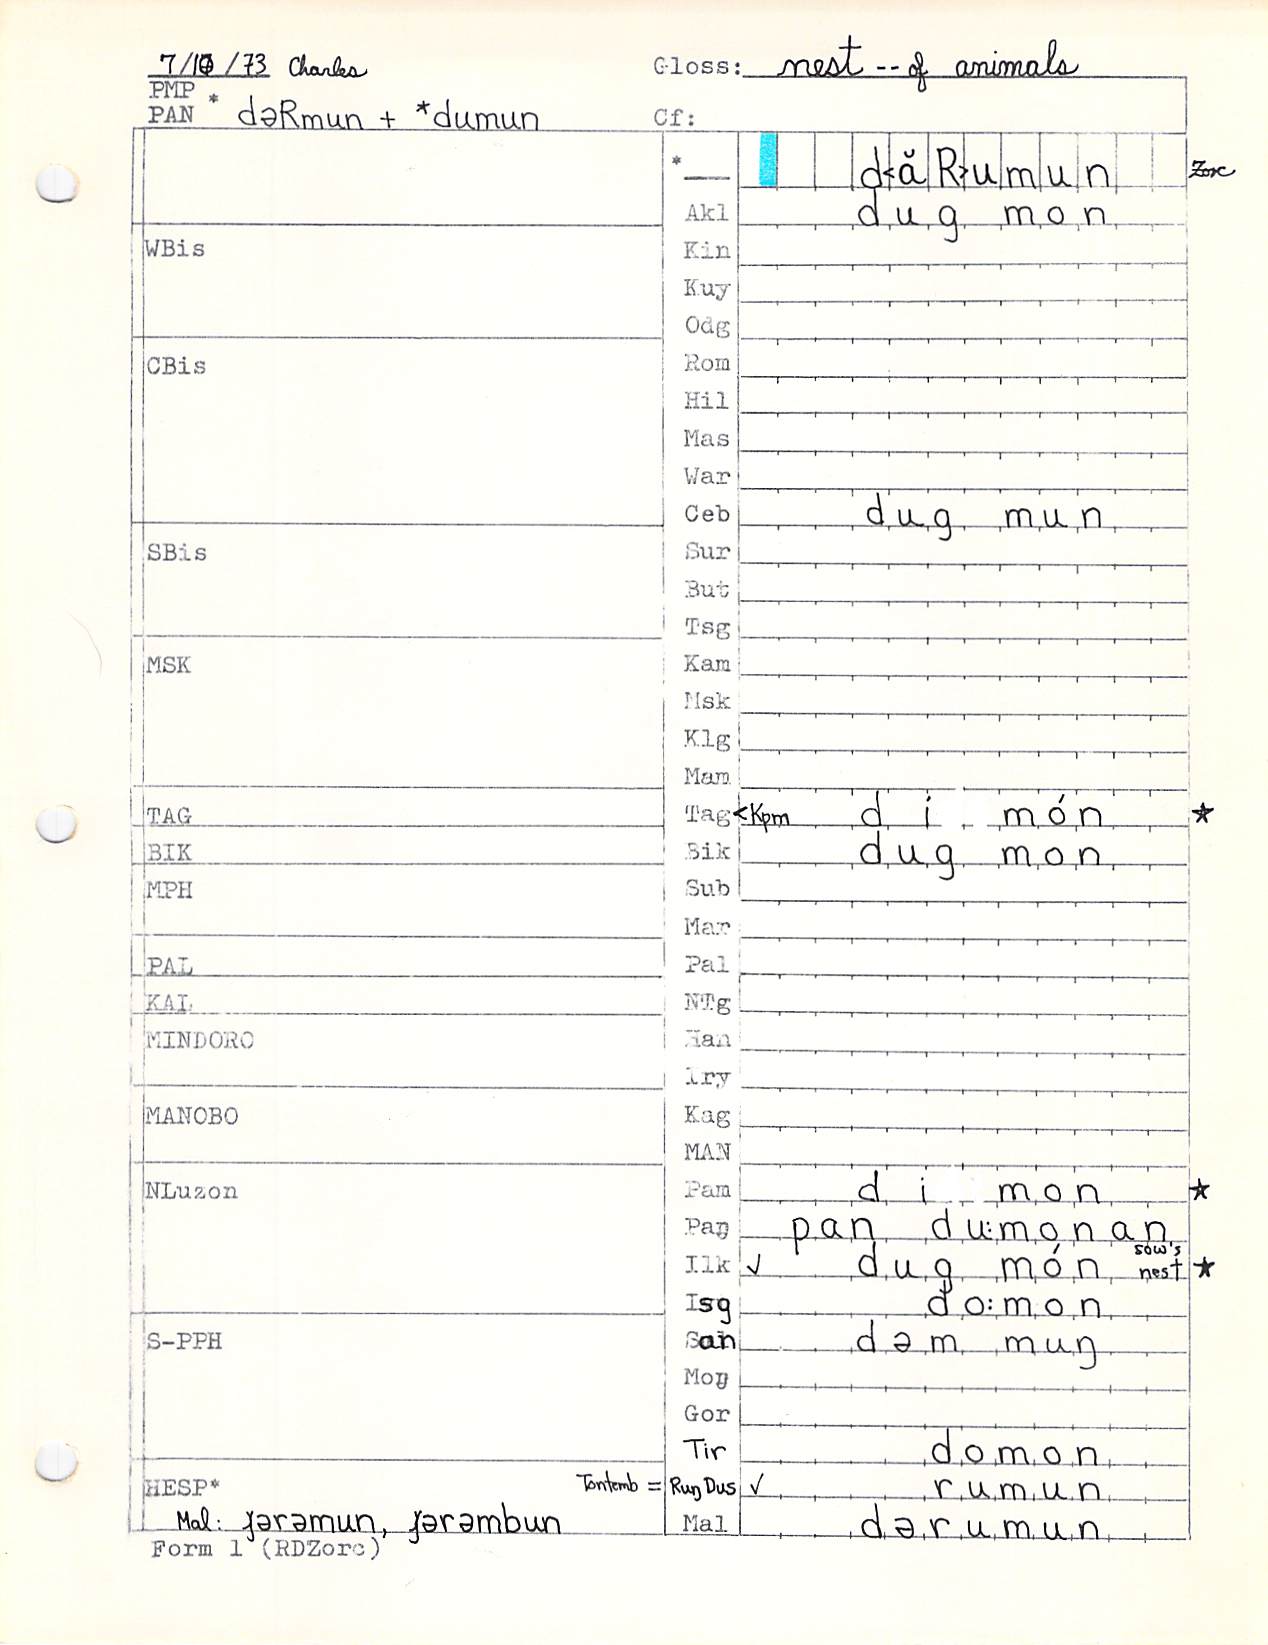 7/10/73 Charles Gloss: nest -- of animals
PMP
PAN * dəRmun + *dumun Cf:
* d<ăR>umun Zorc
Akl dug mon
WBis Kin
Kuy
Odg
CBis Rom
Hil
Mas
War
Ceb dug mun
SBis Sur
But
Tsg
MSK Kam
Msk
Klg
Mam
TAG Tag <Kpm di món ★
BIK Bik dug mon
MPH Sub
Mar
PAL Pal
KAL NTg
MINDORO Han
Iry
MANOBO Kag
MAN
NLuzon Pam di mon ★
Paŋ pan du:monan
Ilk ✓ dug món sow's nest ★
Isg do:mon
S-PPH San dəm muŋ
Moŋ
Gor
Tir domon
HESP* Tontemb = Ruŋ Dus ✓ rumun
Mal: ɟərəmun, ɟərəmbun Mal dərumun
Form 1 (RDZorc)